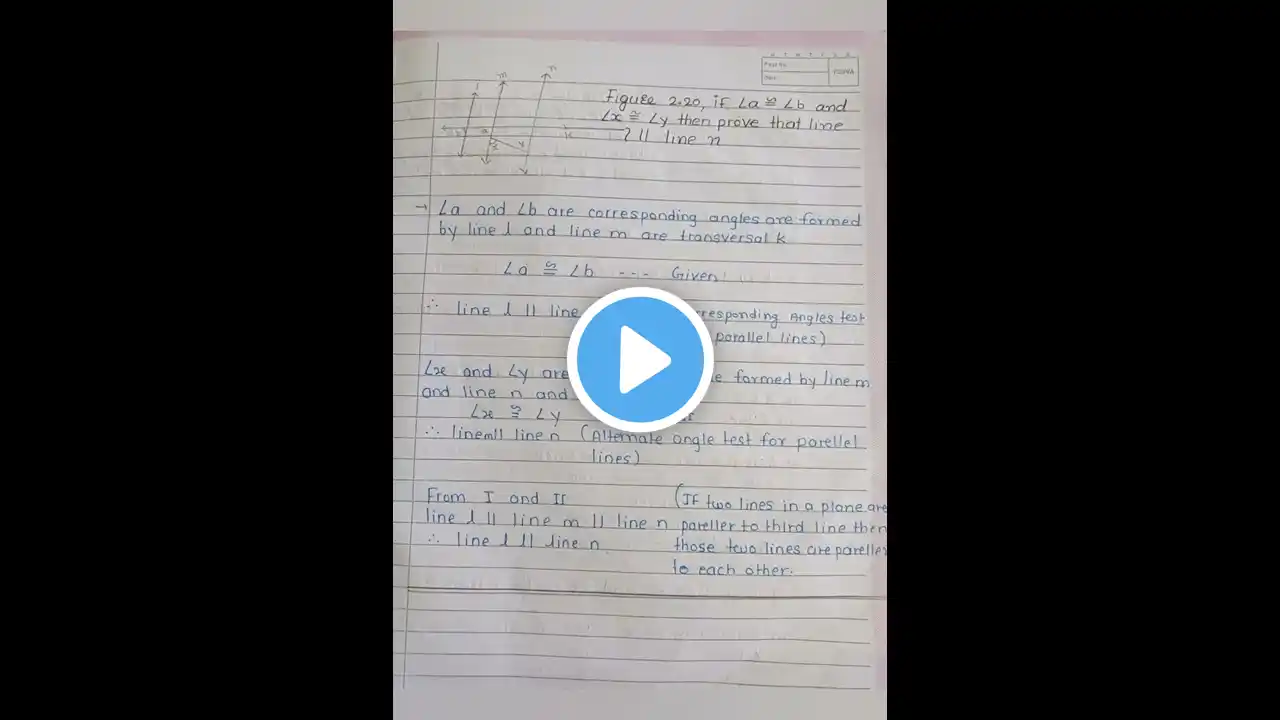 Figure 2.20, if ∠a ≅ ∠b and
∠x ≅ ∠y then prove that line
l || line n
l
m
n
a
x
y
k
→ ∠a and ∠b are corresponding angles are formed
by line l and line m are transversal k
∠a ≅ ∠b --- Given
∴ line l || line
Angles test
parallel lines)
∠x and ∠y are formed by line m
and line n and
∠x ≅ ∠y
∴ line m || line n (Alternate angle test for parellel
lines)
From I and II (If two lines in a plane are
line l || line m || line n pareller to third line then
∴ line l || line n those two lines are pareller
to each other.